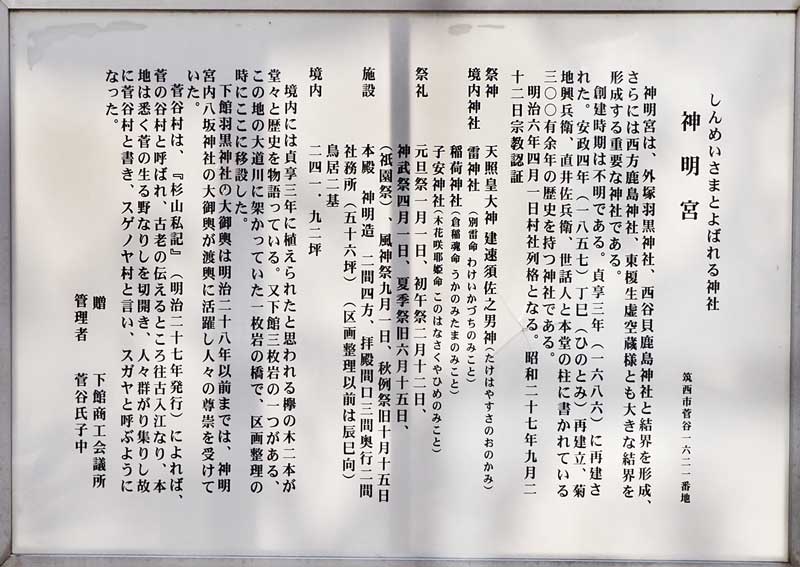 しんめいさまとよばれる神社
神明宮
筑西市菅谷一六二一番地
神明宮は、外塚羽黒神社、西谷貝鹿島神社と結界を形成、
さらには西方鹿島神社、東榎生虚空蔵様とも大きな結界を
形成する重要な神社である。
創建時期は不明である。貞享三年（一六八六）に再建さ
れた。安政四年（一八五七）丁巳（ひのとみ）再建立、菊
地興兵衛、直井佐兵衛、世話人と本堂の柱に書かれている
三〇〇有余年の歴史を持つ神社である。
明治六年四月一日村社列格となる。昭和二十七年九月二
十二日宗教認証
祭神　天照皇大神 建速須佐之男神（たけはやすさのおのかみ）
境内神社　雷神社（別雷命 わけいかづちのみこと）
稲荷神社（倉稲魂命 うかのみたまのみこと）
子安神社（木花咲耶姫命 このはなさくやひめのみこと）
祭礼　元旦祭一月一日、初午祭二月十二日、
神武祭四月一日、夏季祭旧六月十五日、
（祇園祭）、風神祭九月一日、秋例祭旧十月十五日
施設　本殿　神明造　二間四方、拝殿間口三間奥行二間
社務所（五十六坪）（区画整理以前は辰巳向）
鳥居二基
境内　二四一．九二坪
境内には貞享三年に植えられたと思われる欅の木二本が
堂々と歴史を物語っている。又下館三枚岩の一つがある、
この地の大道川に架かっていた一枚岩の橋で、区画整理の
時にここに移設した。
下館羽黒神社の大御輿は明治二十八年以前までは、神明
宮内八坂神社の大御輿が渡輿に活躍し人々の尊崇を受けて
いた。
菅谷村は、『杉山私記』（明治二十七年発行）によれば、
菅の谷村と呼ばれ、古老の伝えるところ往古入江なり、本
地は悉く菅の生る野なりしを切開き、人々群がり集りし故
に菅谷村と書き、スゲノヤ村と言い、スガヤと呼ぶように
なった。
贈　下館商工会議所
管理者　菅谷氏子中